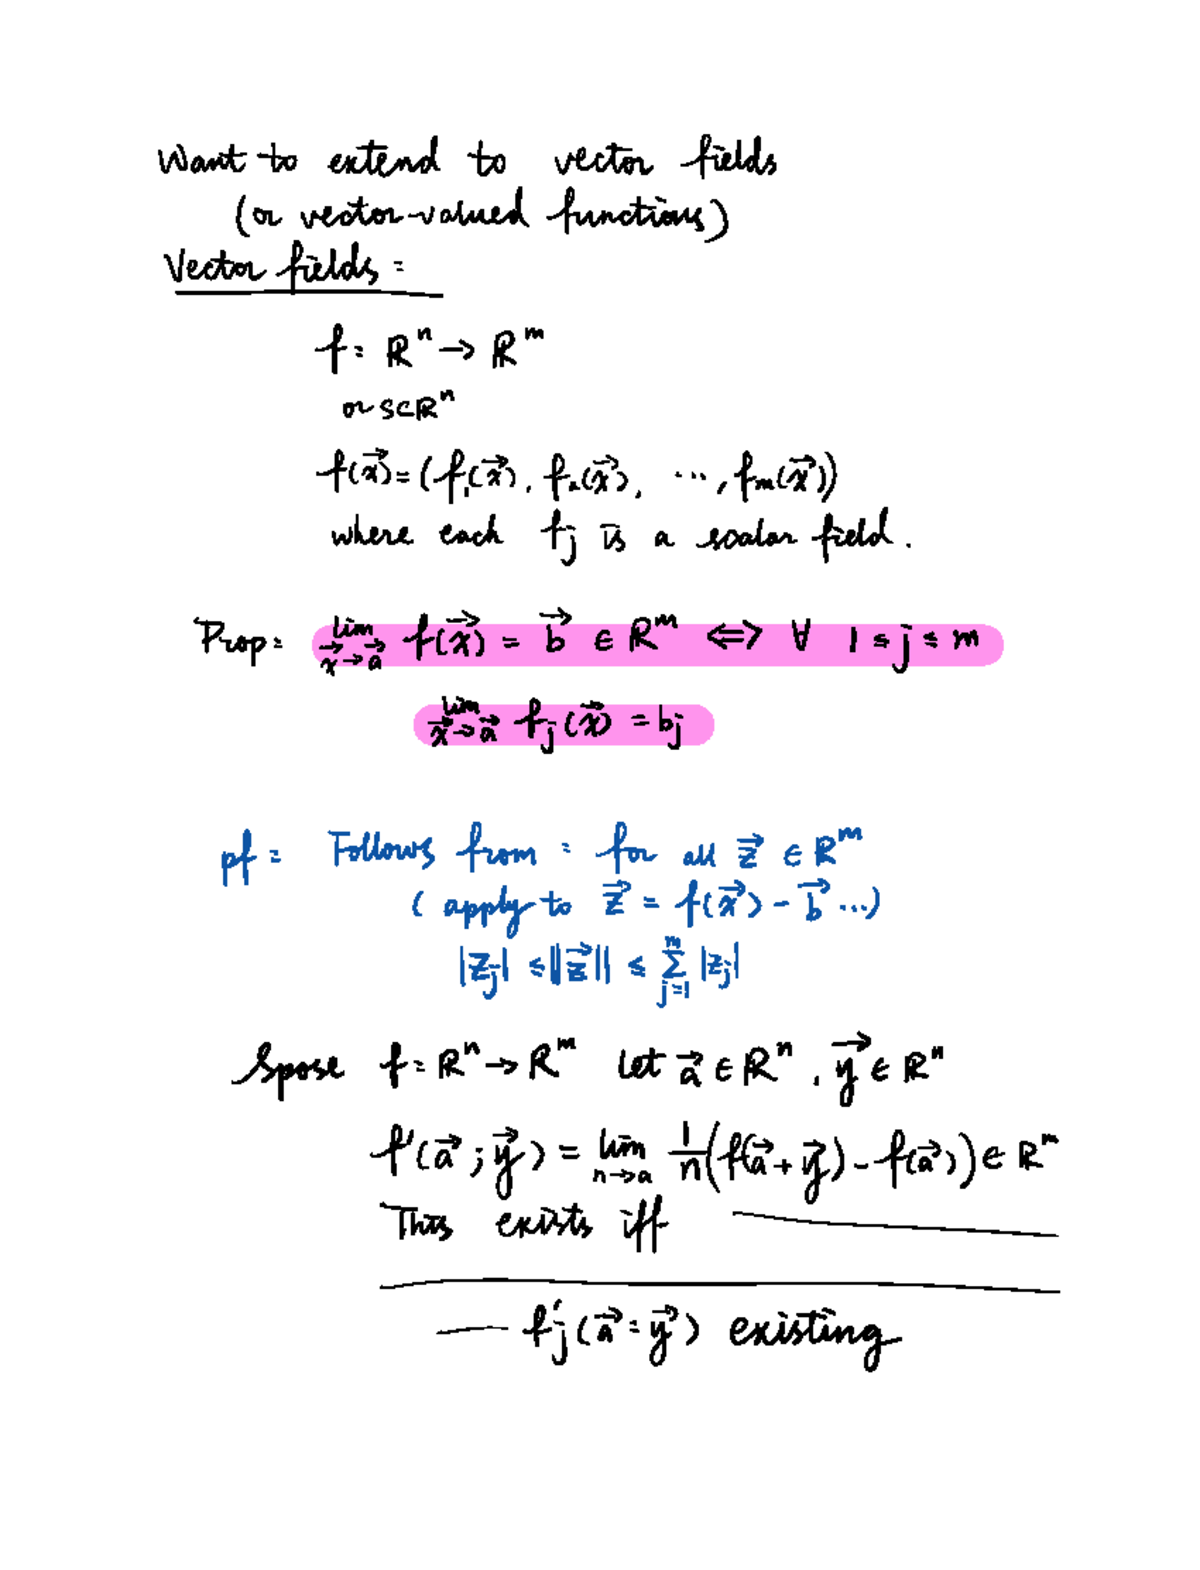 Want to extend to vector fields
(or vector-valued functions)
Vector fields:
f: ℝⁿ → ℝᵐ
or S⊂ℝⁿ
f(x⃗) = (f₁(x⃗), f₂(x⃗), ⋯, fₘ(x⃗))
where each fⱼ is a scalar field.
Prop: lim_{x⃗→a⃗} f(x⃗) = b⃗ ∈ ℝᵐ ⟺ ∀ 1 ≤ j ≤ m
lim_{x⃗→a⃗} fⱼ(x⃗) = bⱼ
pf: Follows from: for all z⃗ ∈ ℝᵐ
(apply to z⃗ = f(x⃗) - b⃗ ...)
|zⱼ| ≤ ||z⃗|| ≤ ∑_{j=1}^{m} |zⱼ|
Spose f: ℝⁿ → ℝᵐ Let a⃗ ∈ ℝⁿ, y⃗ ∈ ℝⁿ
f'(a⃗; y⃗) = lim_{n→a} 1/n (f(a⃗ + y⃗) - f(a⃗)) ∈ ℝᵐ
This exists iff
— fⱼ'(a⃗: y⃗) existing